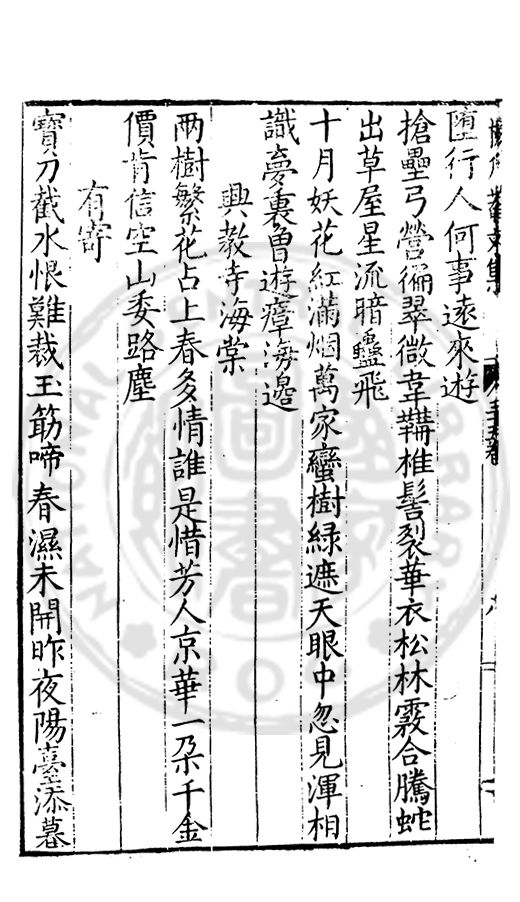 墮行人何事遠來遊
搶壘弓營徧翠微韋韝椎髻裂華衣松林霧合騰蛇
出草屋星流暗蠱飛
十月妖花紅滿烟萬家蠻樹綠遮天眼中忽見渾相
識夢裏曾遊瘴海邉
興教寺海棠
两樹繁花占上春多情誰是惜芳人京華一朶千金
價肯信空山委路塵
有寄
寶刀截水恨難裁玉筯啼春濕未開昨夜陽臺添暮